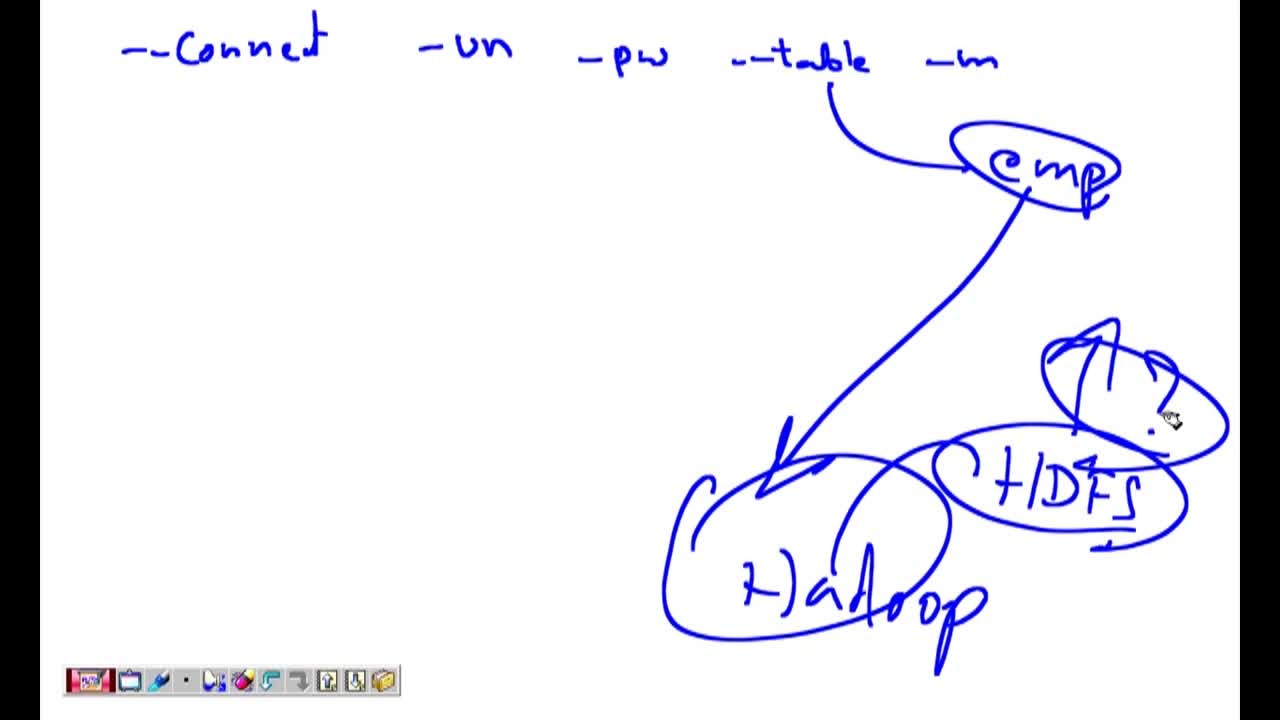 --Connect -un -pw --table -m
emp
?
HDFS
Hadoop